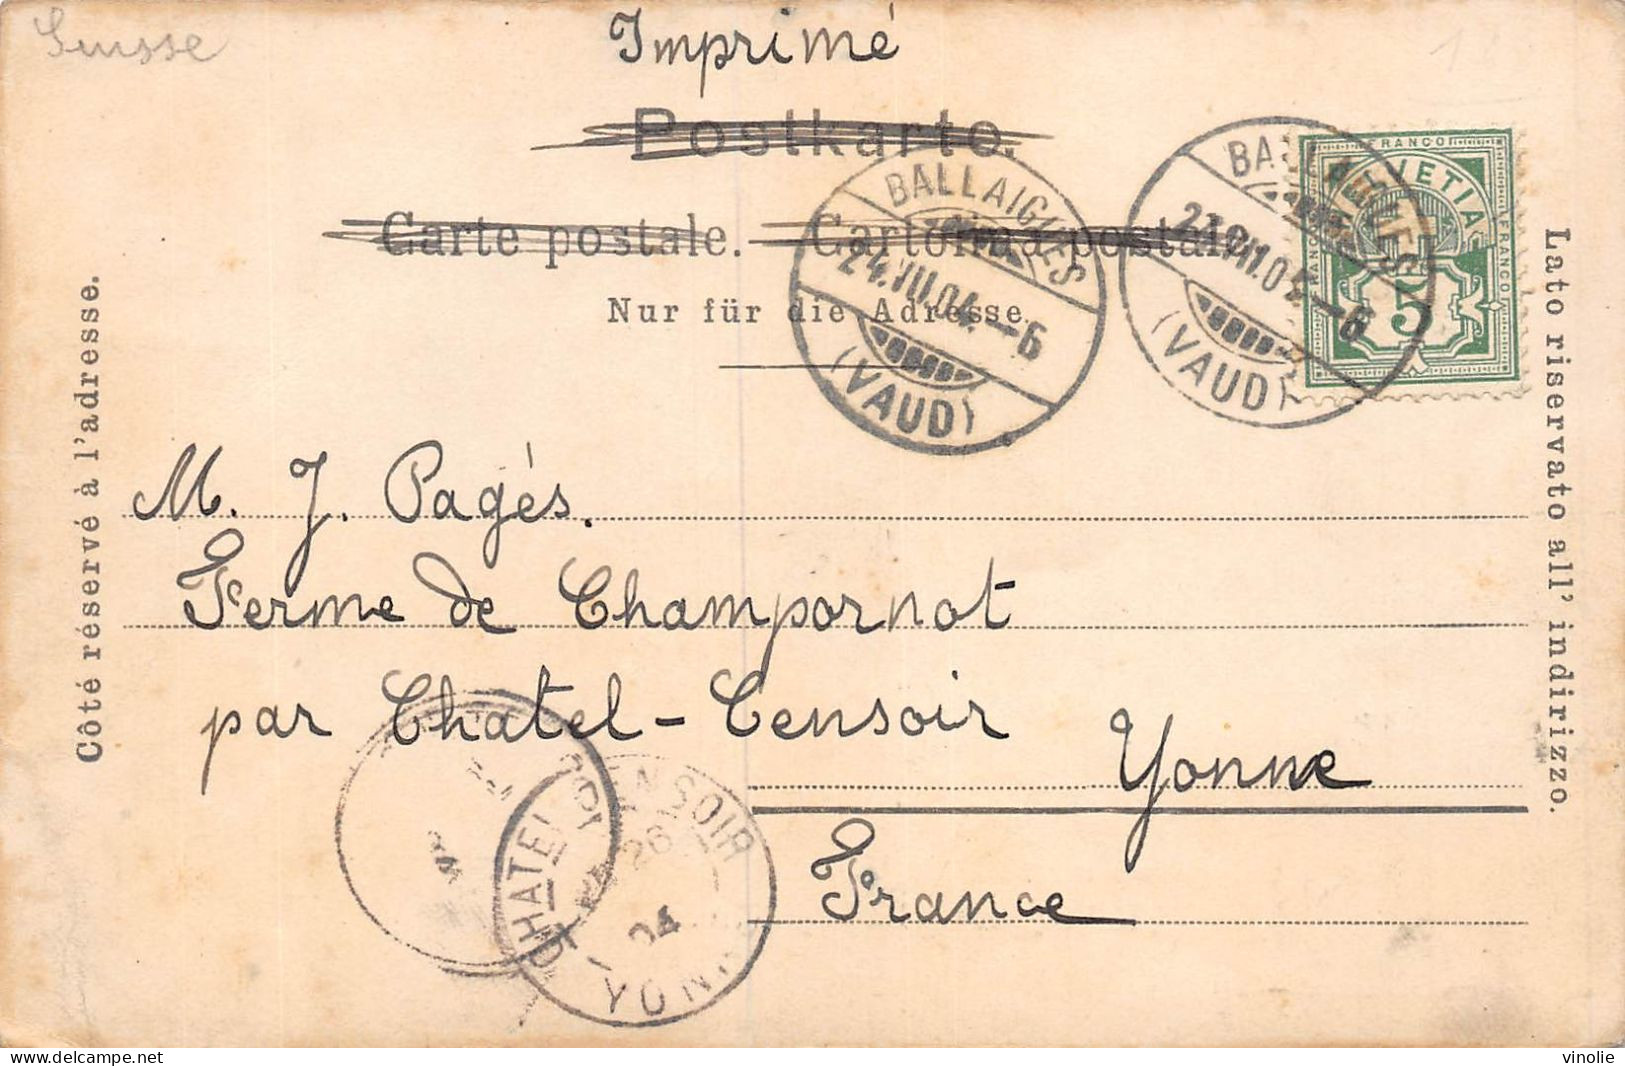 Suisse
Imprimé
Postkarte.
Carte postale. — Cartolina postale.
Nur für die Adresse.
BALLAIGUES
24.VII.04.–6
(VAUD)
BALLAIGUES
(VAUD)
FRANCO
HELVETIA
FRANCO
FRANCO
5
Côté réservé à l'adresse.
Lato riservato all' indirizzo.
M. J. Pagés.
Ferme de Champornot
par Chatel-Censoir Yonne
France
CHATEL CENSOIR
26
04
YONNE
delcampe.net
vinolie